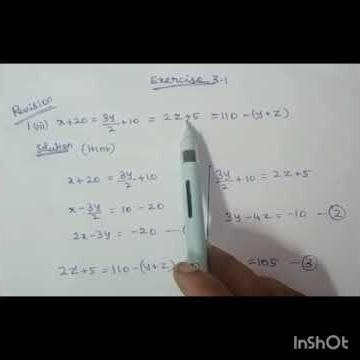 Exercise 3.1
Revision
1.(iii) x+20 = 3y/2 +10 = 2z+5 = 110 -(y+z)
Solution (Hint)
x+20 = 3y/2 +10
x-3y/2 = 10 -20
2x-3y = -20 -
3y/2 +10 = 2z+5
3y-4z = -10 -②
2z+5 = 110-(y+z)
=105 -③
InShOt